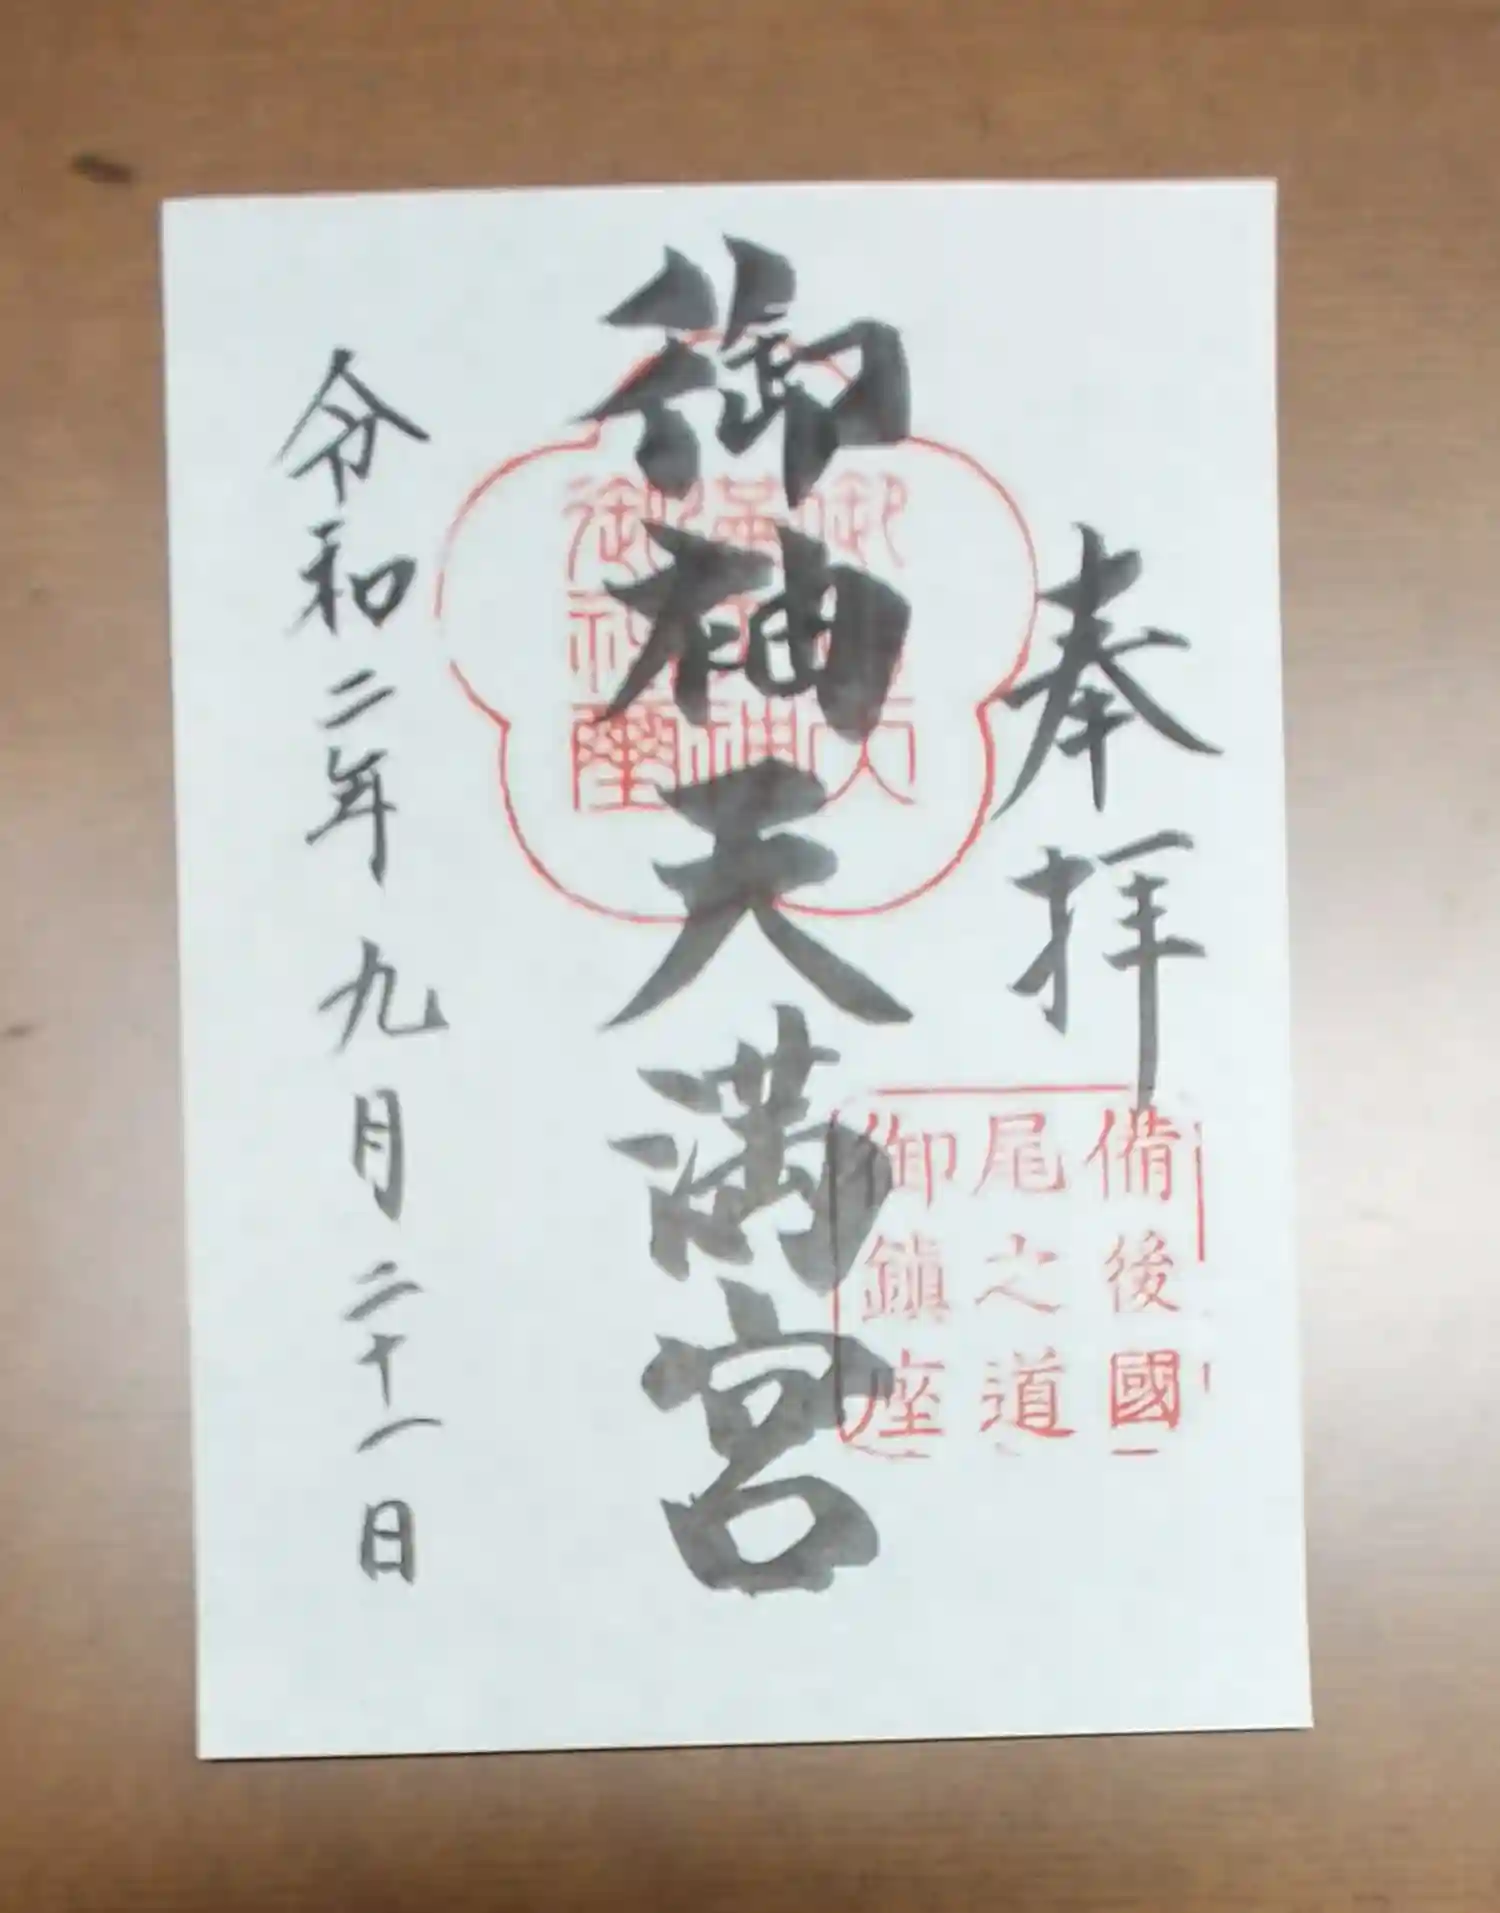 奉拝
備後國
尾之道
御鎮座
御袖天満宮
令和二年九月二十一日